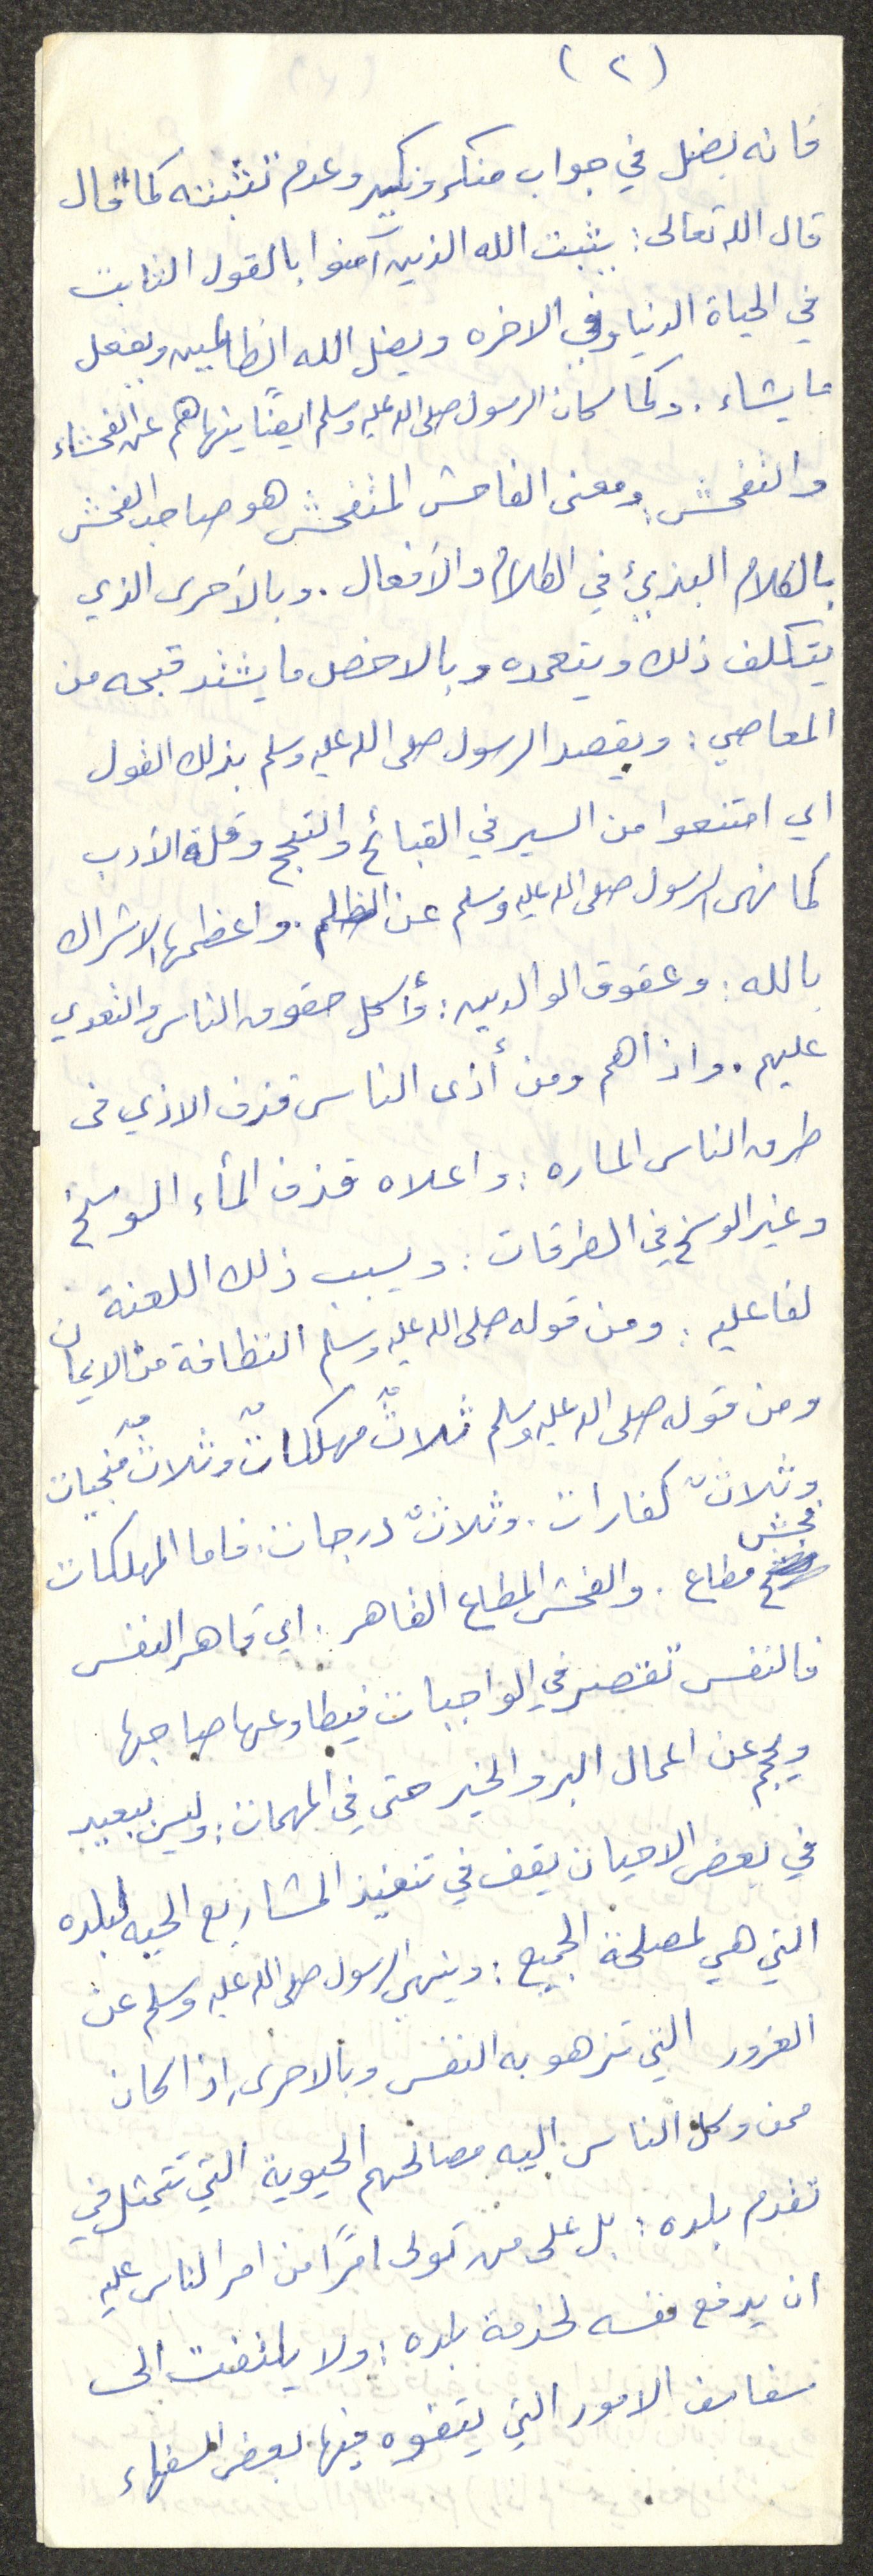 (٢)
فانه يضل في جواب منكر ونكير وعدم تثبته كما قال
قال الله تعالى : يثبت الله الذين آمنوا بالقول الثابت
في الحياة الدنيا وفي الاخره ويضل الله الظالمين ويفعل
ما يشاء . وكما كان الرسول صلى الله عليه وسلم ايضًا ينهاهم عن الفحشاء
والتفحش ومعنى الفاحش المتفحش هو صاحب الفحش
بالكلام البذيئ في الكلام والأفعال . وبالأحرى الذي
يتكلف ذلك ويتعمده وبالاخص ما يشتد قبحه من
المعاصي : ويقصد الرسول صلى الله عليه وسلم بذلك القول
اي امتنعوا من السير في القبائح والتبجح وقلة الأدب
كما نهى الرسول صلى الله عليه وسلم عن الظلم . واعظمها الاشراك
بالله : وعقوق الوالدين : وأكل حقوق الناس والتعدي
عليهم . واذاهم ومن أذى الناس قذف الاذي فى
طرق الناس الماره : واعلاه قذف المأء الوسخ
وغير الوسخ في الطرقات : ويسبب ذلك اللعنة
لفاعليه : ومن قوله صلى الله عليه وسلم النظافة من الايمان
ومن قوله صلى الله عليه وسلم ثلاثٌ مهلكاتٌ وثلاثٌ منجيات
وثلاثٌ كفارات . وثلاثٌ درجات . فاما المهلكات
فحش مطاع . والفحش المطاع القاهر . اي قاهر النفس
فالنفس تقتصر في الواجبات فيطاوعها صاحبها
ويحجم عن اعمال البر والخير حتى في المهمات : وليس ببعيد
في بعض الاحيان يقف في تنفيذ المشاريع الحيه لبلده
التي هي لمصلحة الجميع : وينهى الرسول صلى الله عليه وسلم عن
الغرور التي تزهو به النفس وبالاحرى اذا كان
ممن وكل الناس اليه مصالحهم الحيوية التي تتمثل في
تقدم بلده : بل على من تولى امرًا من امر الناس عليه
ان يدفع نفسه لخدمة بلده : ولا يلتفت الى
سفاسف الامور التي يتفوه فيها بعض السفهاء